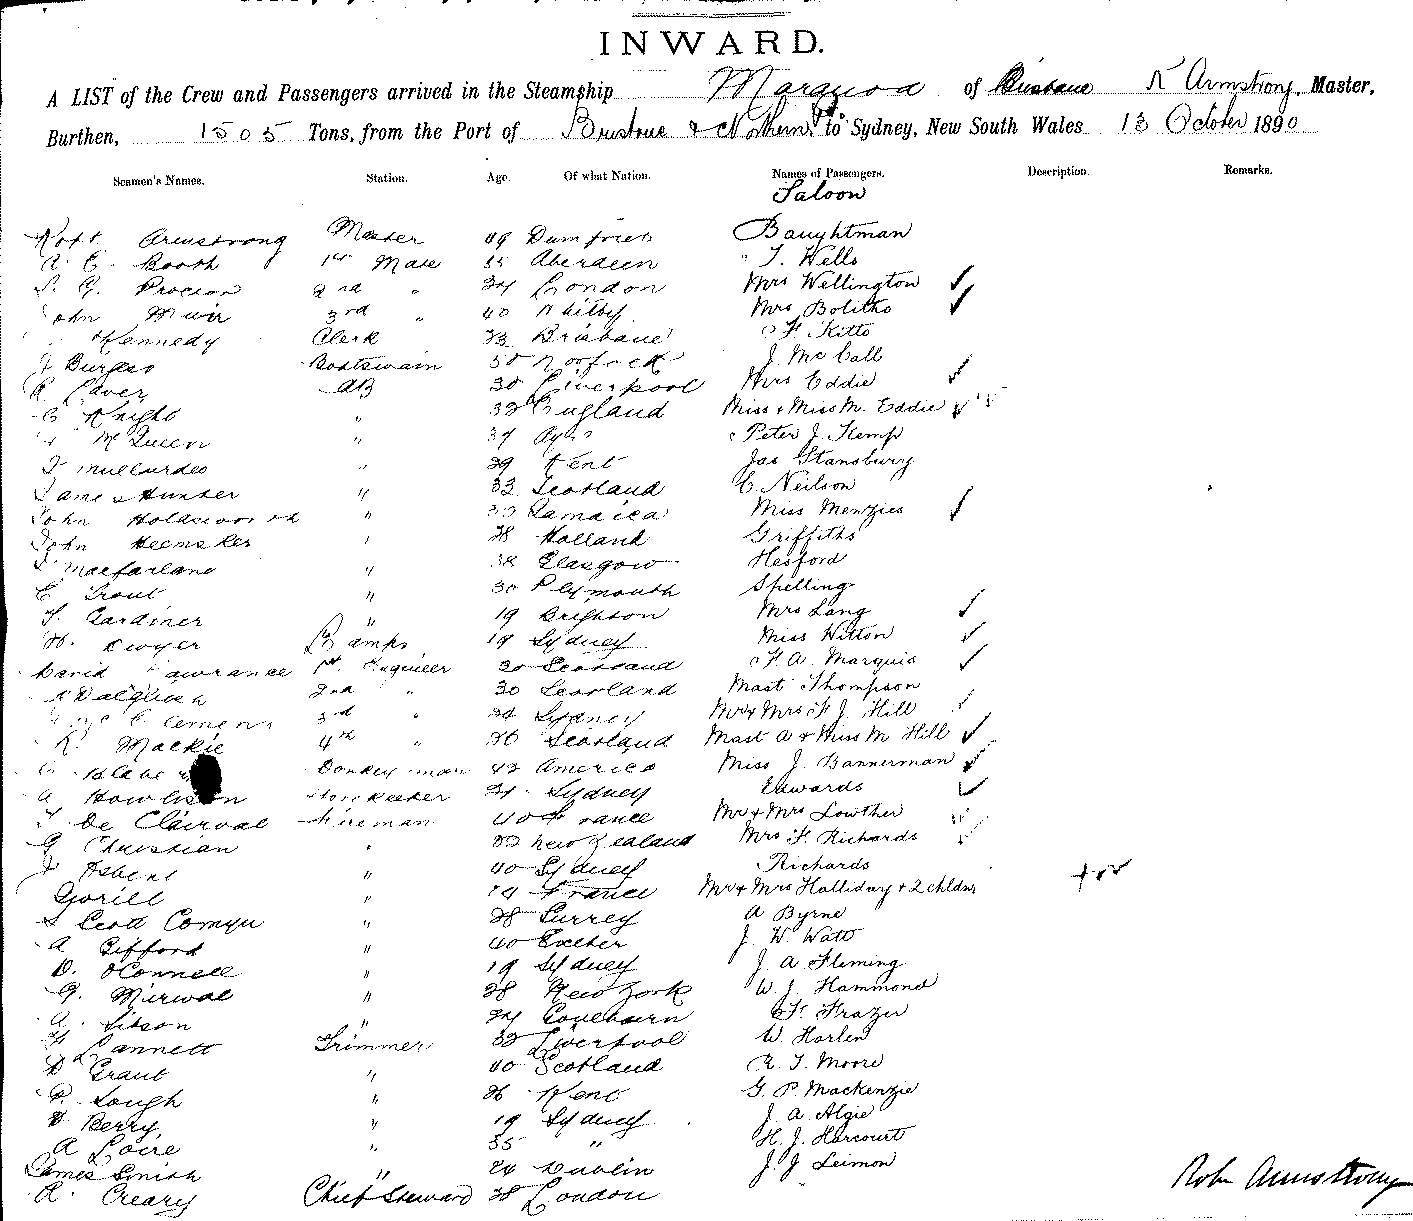 INWARD.
A LIST of the Crew and Passengers arrived in the Steamship Maranoa of Brisbane R Armstrong, Master,
Burthen, 1505 Tons, from the Port of Brisbane & Northern Pts to Sydney, New South Wales 13 October 1890
Seamen's Names. Station. Age. Of what Nation. Names of Passengers. Description. Remarks.
Saloon
Robt. Armstrong Master 49 Dumfries Baughtman
A. E. Booth 1st Mate 35 Aberdeen T. Wells
G. 2nd " 34 London Mrs Wellington ✓
John Muir 3rd " 40 Whitby Mrs Bolitho ✓
Kennedy Clerk 33 Brisbane F. Kitto
J Burgess Boatswain 50 J. McCall
R. Laver AB 30 Liverpool Mrs Eddie ✓
Knight " 32 England Miss & Miss M. Eddie ✓
McQueen " 37 Ayr Peter J. Kemp
" 29 Kent Jas Stansbury
James Hunter " 33 Scotland C. Neilson
John Holdsworth " Jamaica Miss Menzies ✓
John Heemsker " 28 Holland Griffiths
Macfarlane " 38 Glasgow Hesford
C Trout " 30 Plymouth Spelling
T. Gardiner " 19 Brighton Mrs Lang ✓
H. Dwyer Lamps 19 Sydney Miss Witton ✓
David Lawrance 1st. Engineer 30 Scotland F. A. Marquis ✓
Dalglish 2nd " 30 Scotland Mast Thompson
Clemens 3rd " 24 Sydney Mr & Mrs F. J. Hill ✓
R. Mackie 4th " 26 Scotland Mast A & Miss M Hill ✓
Donkey man 42 America Miss J. Bannerman ✓
A Howlison Storekeeper 21 Sydney Edwards ✓
De Clairval Fireman 40 France Mr & Mrs Lowther
G Christian " New Zealand Mrs F. Richards ✓
J " 40 Sydney Richards
Gorill " 24 France Mr & Mrs Halliday + 2 chldn
S Scott Comyn " 28 Surrey A Byrne
A Gifford " 40 Exeter J. W. Watt
D. OConnell " 19 Sydney J. A Fleming
G. " 28 New York W. J. Hammond
A. Sibson " 24 Goulburn F. Frazer
Lannett Trimmer 32 Liverpool W. Harlen
D Grant " 40 Scotland R. J. Moore
R. Lough " 26 Kent G. P. Mackenzie
Berry " 19 Sydney J. A Algie
A Loire " 35 " H. J. Harcourt
James Smith " 24 Dublin J. J Leimon
R. Creary Chief Steward 38 London
Robt Armstrong